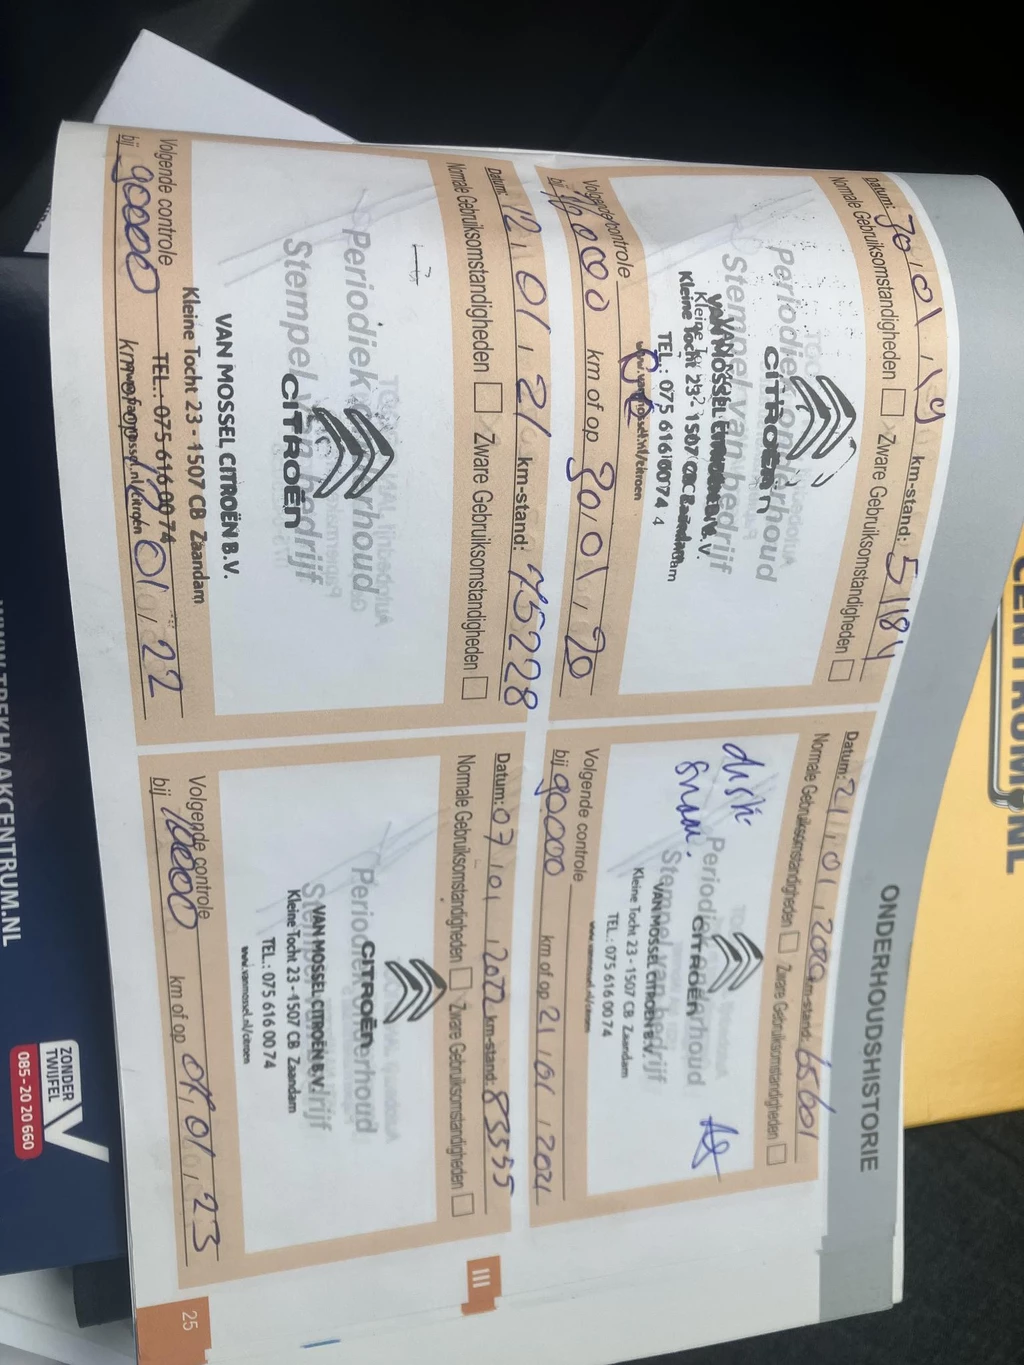 ONDERHOUDSHISTORIE
Datum: 30, 01, 19 km-stand: 51184
Normale Gebruiksomstandigheden Zware Gebruiksomstandigheden
Periodiek onderhoud
Stempel van bedrijf
CITROËN
VAN MOSSEL CITROËN B.V.
Kleine Tocht 23 - 1507 CB Zaandam
TEL.: 075 616 00 74
www.vanmossel.nl/citroen
Volgende controle
bij km of op 30, 01, 20
Datum: 21, 01, 2020 km-stand: 65601
Normale Gebruiksomstandigheden Zware Gebruiksomstandigheden
Periodiek onderhoud
Stempel van bedrijf
CITROËN
VAN MOSSEL CITROËN B.V.
Kleine Tocht 23 - 1507 CB Zaandam
TEL.: 075 616 00 74
www.vanmossel.nl/citroen
Volgende controle
bij 90.000 km of op 21, 01, 2021
Datum: 12, 01, 21 km-stand: 75228
Normale Gebruiksomstandigheden Zware Gebruiksomstandigheden
Periodiek onderhoud
Stempel van bedrijf
CITROËN
VAN MOSSEL CITROËN B.V.
Kleine Tocht 23 - 1507 CB Zaandam
TEL.: 075 616 00 74
www.vanmossel.nl/citroen
Volgende controle
bij 90000 km of op 12, 01, 22
Datum: 07, 01, 2022 km-stand: 83555
Normale Gebruiksomstandigheden Zware Gebruiksomstandigheden
Periodiek onderhoud
Stempel van bedrijf
CITROËN
VAN MOSSEL CITROËN B.V.
Kleine Tocht 23 - 1507 CB Zaandam
TEL.: 075 616 00 74
www.vanmossel.nl/citroen
Volgende controle
bij 100000 km of op 07, 01, 23
III
25
CENTRUM.NL
WWW.TREKHAAKCENTRUM.NL
ZONDER
TWIJFEL
085-20 20 660